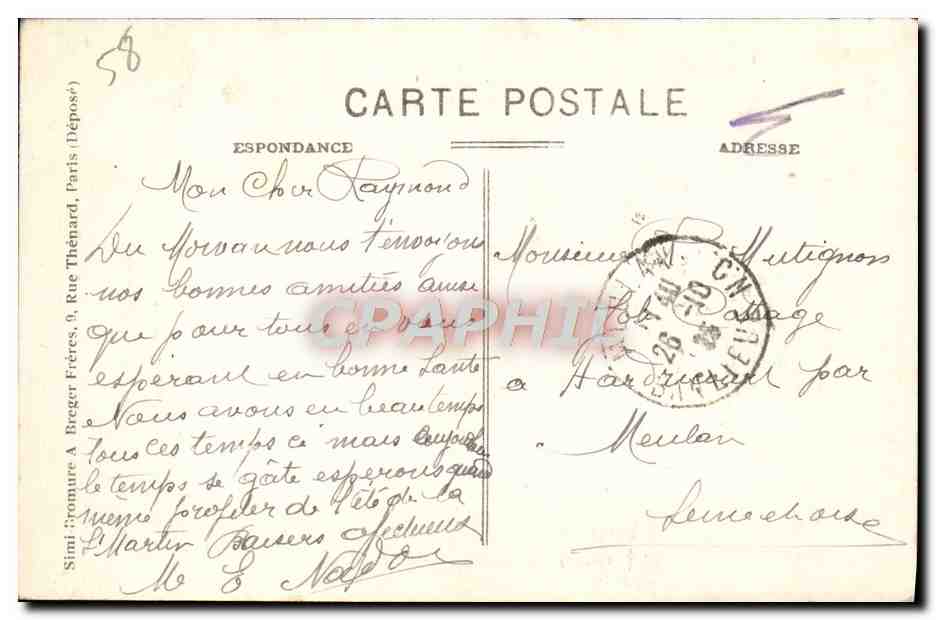 58
CARTE POSTALE
ESPONDANCE
ADRESSE
Simi-Bromure A Breger Frères, 9, Rue Thénard, Paris (Déposé)
Mon Cher Raymond
Du Morvan nous t'envoyons
nos bonnes amitiés ainsi
que pour tous en vous
espérant en bonne Santé
Nous avons eu beau temps
tous ces temps ci mais aujourd'hui
le temps se gâte esperons quand
même profiter de l'été de la
St Martin Baisers affectueux
M E
Monsieur R Mutignon
Passage
a Hardricourt par
Meulan
Seine et oise
CHATILLON
11 40
26 -10
CPAPHIL